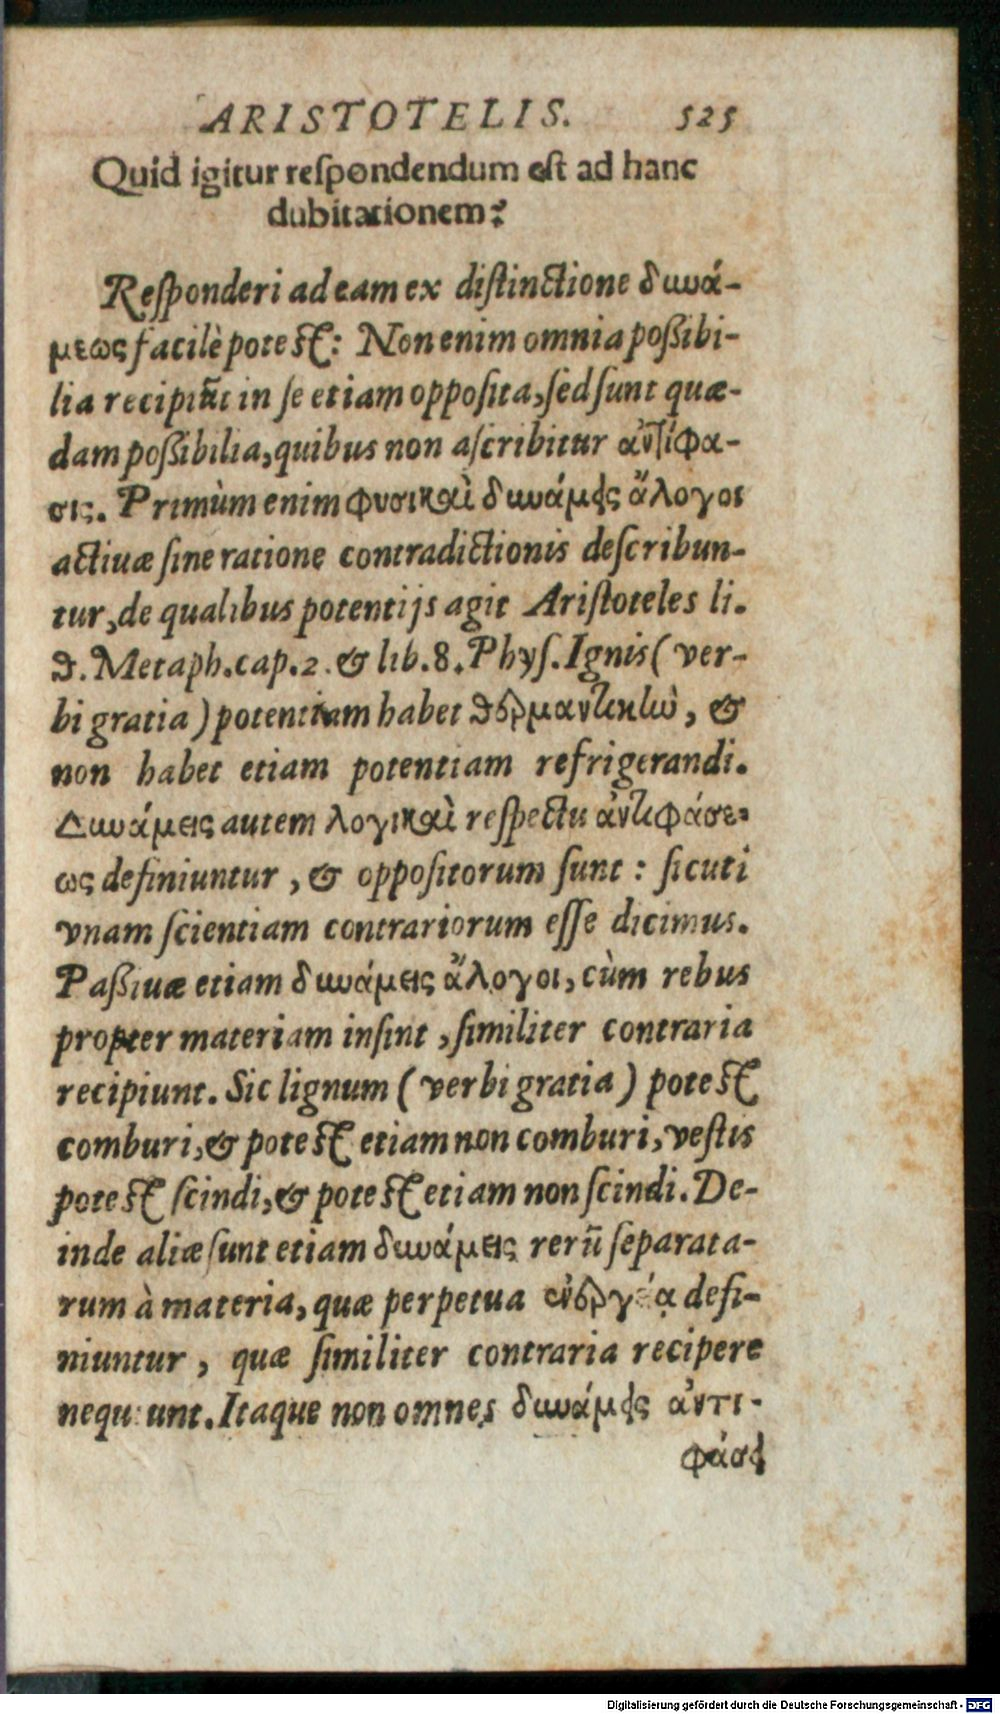 ARISTOTELIS. 525
Quid igitur reſpondendum eſt ad hanc
dubitationem?
Reſponderi ad eam ex diſtinctione δυνά-
μεως facilè poteſt: Non enim omnia poßibi-
lia recipiũt in ſe etiam oppoſita, ſed ſunt quæ-
dam poßibilia, quibus non aſcribitur ἀντίφα-
σις. Primùm enim φυσικαὶ δυνάμεις ἄλογοι
actiuæ ſine ratione contradictionis deſcribun-
tur, de qualibus potentijs agit Ariſtoteles li.
ϑ. Metaph. cap. 2. & lib. 8. Phyſ. Ignis (ver-
bi gratia) potentiam habet ϑερμαντικὴν, &
non habet etiam potentiam refrigerandi.
Δυνάμεις autem λογικαὶ reſpectu ἀντιφάσε-
ως definiuntur, & oppoſitorum ſunt: ſicuti
vnam ſcientiam contrariorum eſſe dicimus.
Paßiuæ etiam δυνάμεις ἄλογοι, cùm rebus
propter materiam inſint, ſimiliter contraria
recipiunt. Sic lignum (verbi gratia) poteſt
comburi, & poteſt etiam non comburi, veſtis
poteſt ſcindi, & poteſt etiam non ſcindi. De-
inde aliæ ſunt etiam δυνάμεις rerũ ſeparata-
rum à materia, quæ perpetua ἐνεργείᾳ defi-
niuntur, quæ ſimiliter contraria recipere
nequeunt. Itaque non omnes δυνάμεις ἀντι-
φάσει
Digitalisierung gefördert durch die Deutsche Forschungsgemeinschaft - DFG